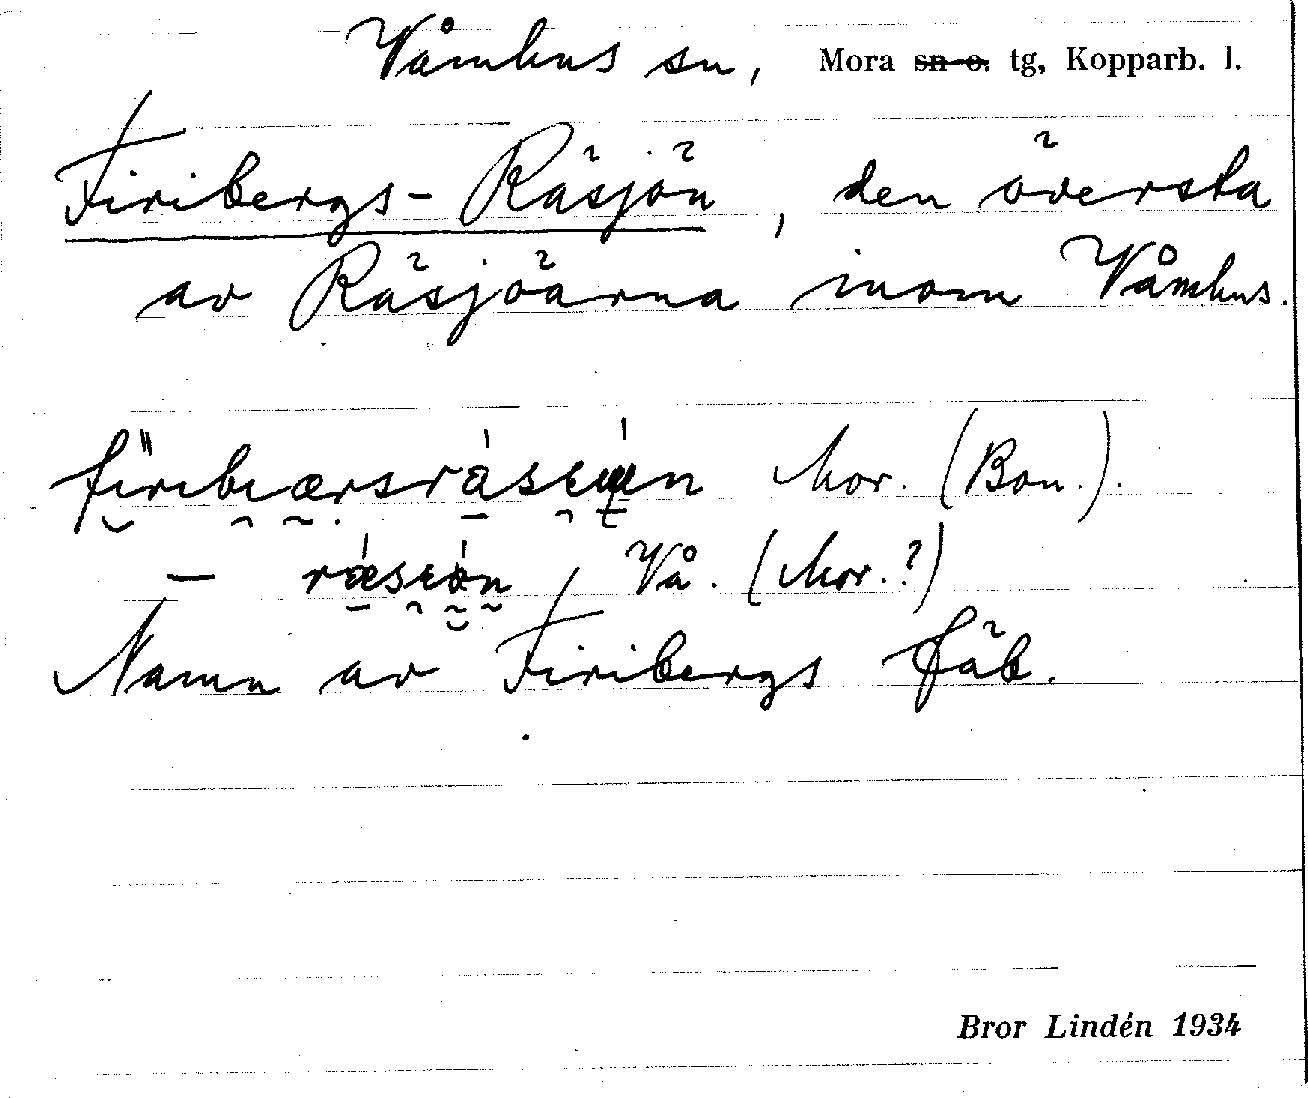 Våmhus sn, Mora ~~sn o.~~ tg, Kopparb. l.
Firibergs-Räsjön, den översta
av Räsjöarna inom Våmhus.
Mor. (Bon.).
— Vå. (Mor.?)
Namn av Firibergs fäb.
Bror Lindén 1934